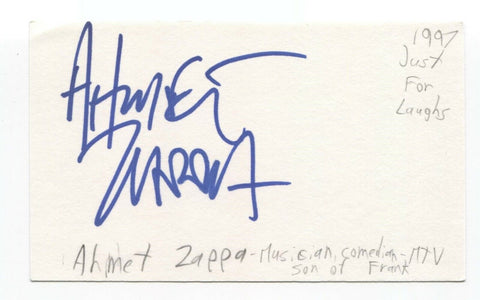 AHMET
ZAPPA
1997
Just
For
Laughs
Ahmet Zappa - Musician, comedian - MTV
son of Frank